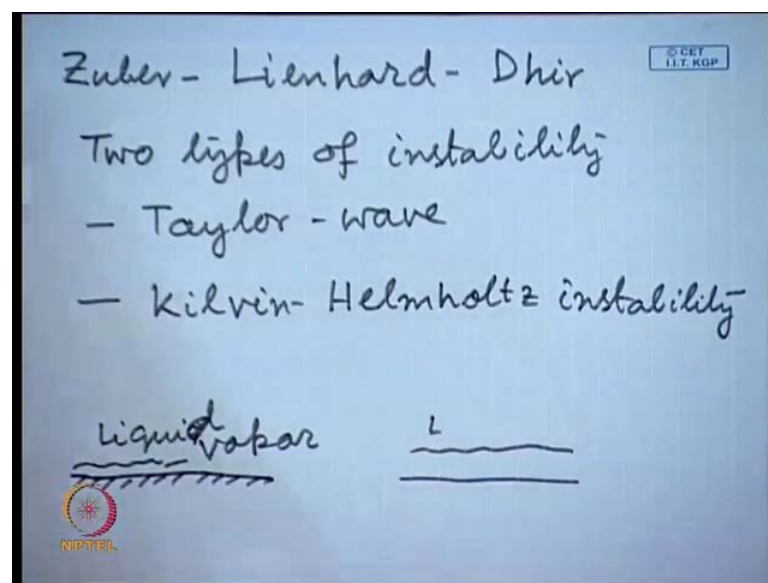 Zuber - Lienhard - Dhir
© CET
I.I.T. KGP
Two types of instability
- Taylor - wave
- Kilvin - Helmholtz instability
Liquid vapor L
NPTEL